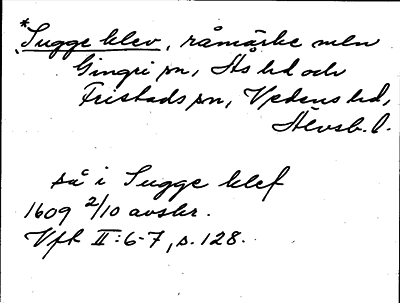 *Sugge klev, råmärke mln
Gingri sn, Ås hd och
Fristads sn, Vedens hd,
Älvsb. l.
så i Sugge klef
1609 2/10 avskr.
Vft II:6-7, s. 128.